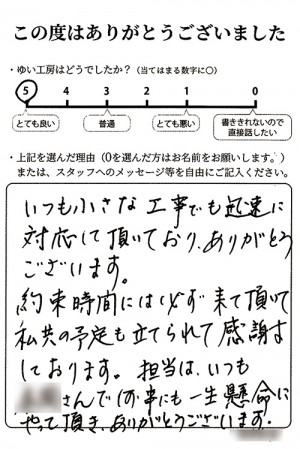 この度はありがとうございました
・ゆい工房はどうでしたか？（当てはまる数字に〇）
5 4 3 2 1 0
とても良い 普通 とても悪い 書ききれないので
直接話したい
・上記を選んだ理由（0を選んだ方はお名前をお願いします。）
または、スタッフへのメッセージ等を自由にご記入ください。
いつも小さな工事でも迅速に
対応して頂いており、ありがとう
ございます。
約束時間には必ず来て頂いて
私共の予定も立てられて感謝
しております。担当は、いつも
さんで何事にも一生懸命に
やって頂き、ありがとうございます。